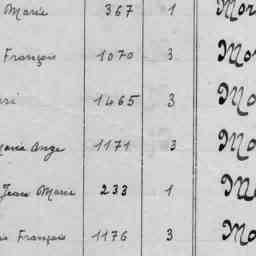 Marie 367 1 Mor
François 1070 3 Mo
1465 3 Mo
Marie Ange 1171 3 Mo
Jean Marie 233 1 Mo
François 1176 3 Mo